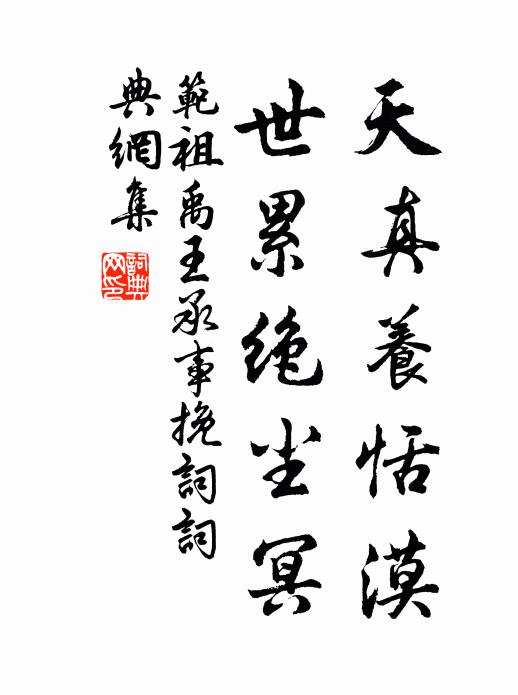 天真養恬漠
世累絶尘冥
範祖禹王承事挽詞詞
典網集
詞典
网印